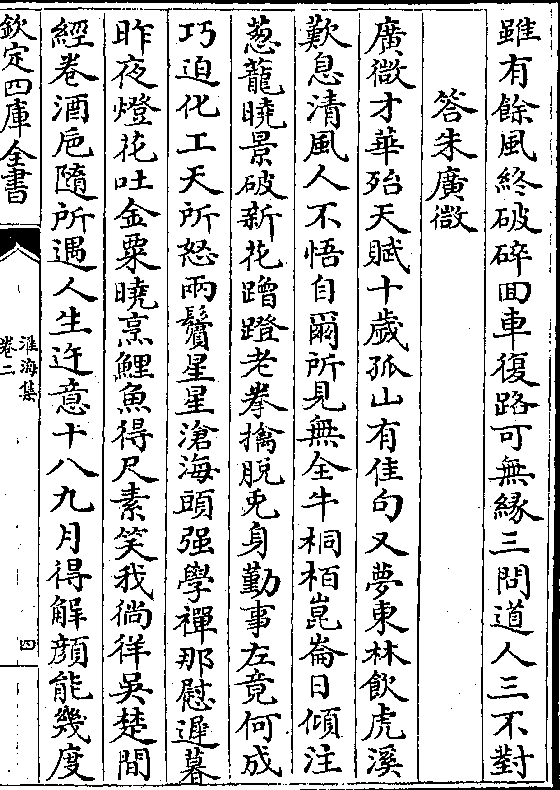 雖有餘風終破碎回車復路可無縁三問道人三不對
答朱廣微
廣微才華殆天賦十歲孤山有佳句又夢東林飲虎溪
歎息清風人不悟自爾所見無全牛桐栢崑崙日傾注
葱蘢曉景破新花蹭蹬老拳擒脱兎身勤事左竟何成
巧迫化工天所怒兩鬢星星滄海頭强學禪那慰遲暮
昨夜燈花吐金粟曉烹鯉魚得尺素笑我徜徉吳楚間
經卷酒巵隨所遇人生迕意十八九月得解顔能幾度
欽定四庫全書
淮海集
卷二
四